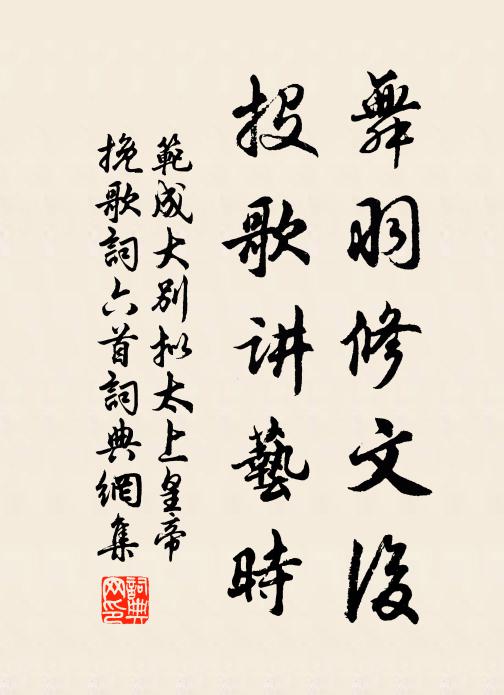 舞羽修文後
投歌讲藝時
範成大别拟太上皇帝
挽歌詞六首詞典網集
詞典网印